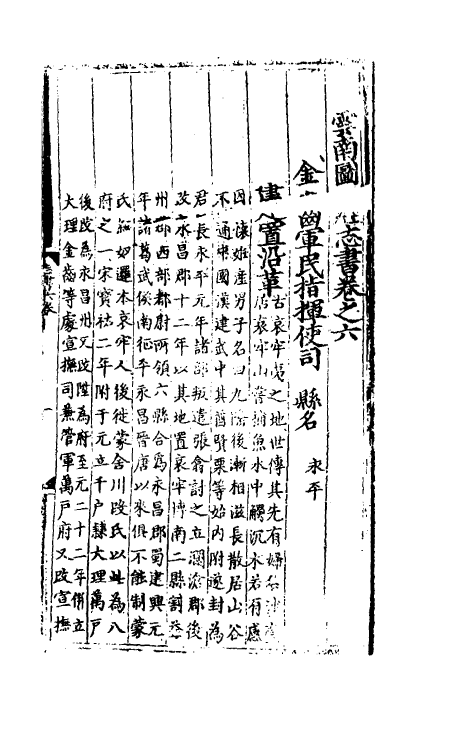 雲南圖志書卷之六
金齒軍民指揮使司 縣名 永平
建置沿革
古哀牢夷之地世傳其先有婦
居哀牢山嘗捕魚水中觸沉木若有感
因懷姙產男子名曰九隆後漸相滋長散居山谷
不通中國漢建武中其酋賢栗等始內附遂封為
君長永平元年諸部叛遣張翕討之立瀾滄郡後
改永昌郡十二年以其地置哀牢博南二縣割益
州郡西部都尉所領六縣合為永昌郡蜀建興元
年諸葛武侯南征平永昌晉唐以來俱不能制蒙
氏始邇本哀牢人後徙蒙舍川段氏以此為八
府之一宋寶祐二年附于元立千戶隸大理萬戶
後改為永昌州又改陞為府至元二十二年併立
大理金齒等處宣撫司兼管軍萬戶府又改宣撫